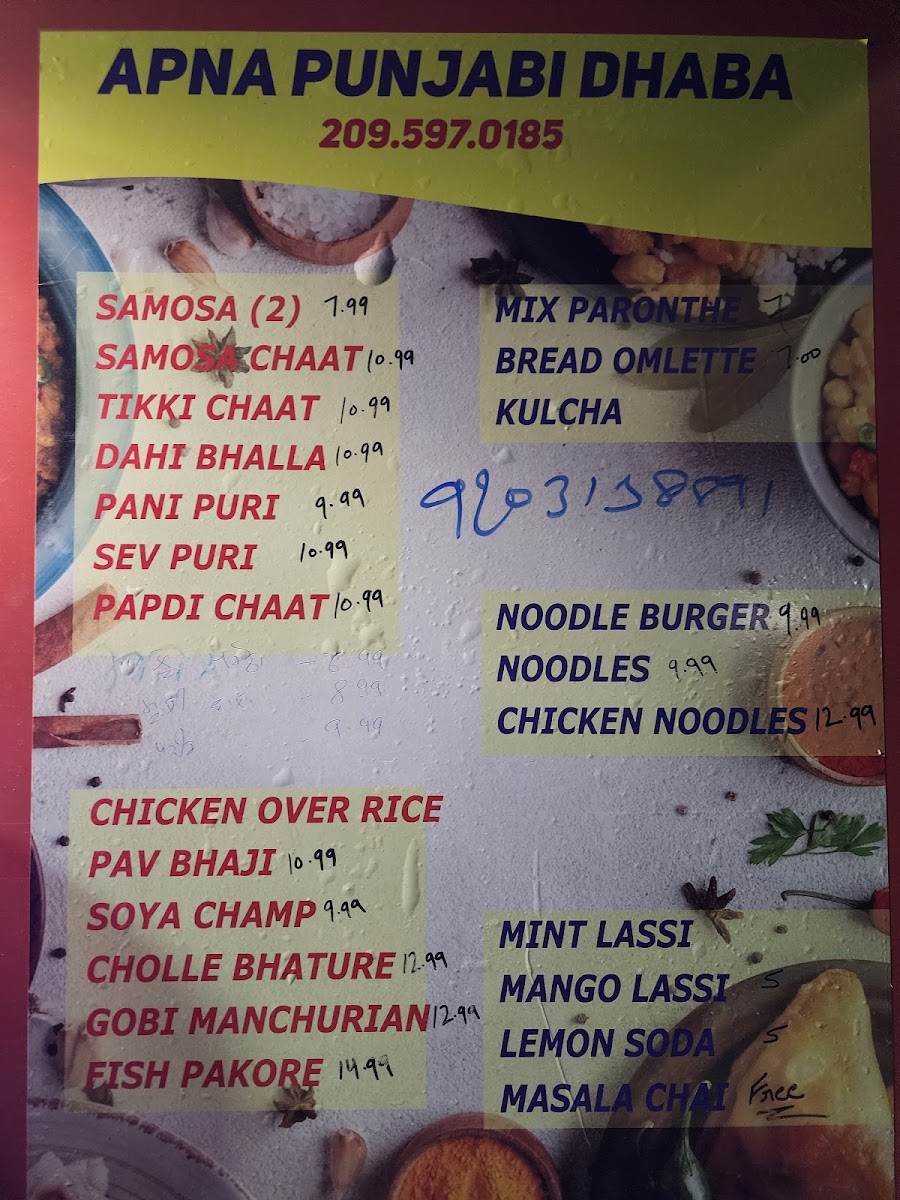 APNA PUNJABI DHABA
209.597.0185
SAMOSA (2) 7.99
SAMOSA CHAAT 10.99
TIKKI CHAAT 10.99
DAHI BHALLA 10.99
PANI PURI 9.99
SEV PURI 10.99
PAPDI CHAAT 10.99
- 8.99
- 8.99
- 9.99
CHICKEN OVER RICE
PAV BHAJI 10.99
SOYA CHAMP 9.99
CHOLLE BHATURE 12.99
GOBI MANCHURIAN 12.99
FISH PAKORE 14.99
MIX PARONTHE 7
BREAD OMLETTE 7.00
KULCHA
NOODLE BURGER 9.99
NOODLES 9.99
CHICKEN NOODLES 12.99
MINT LASSI
MANGO LASSI 5
LEMON SODA 5
MASALA CHAI Free